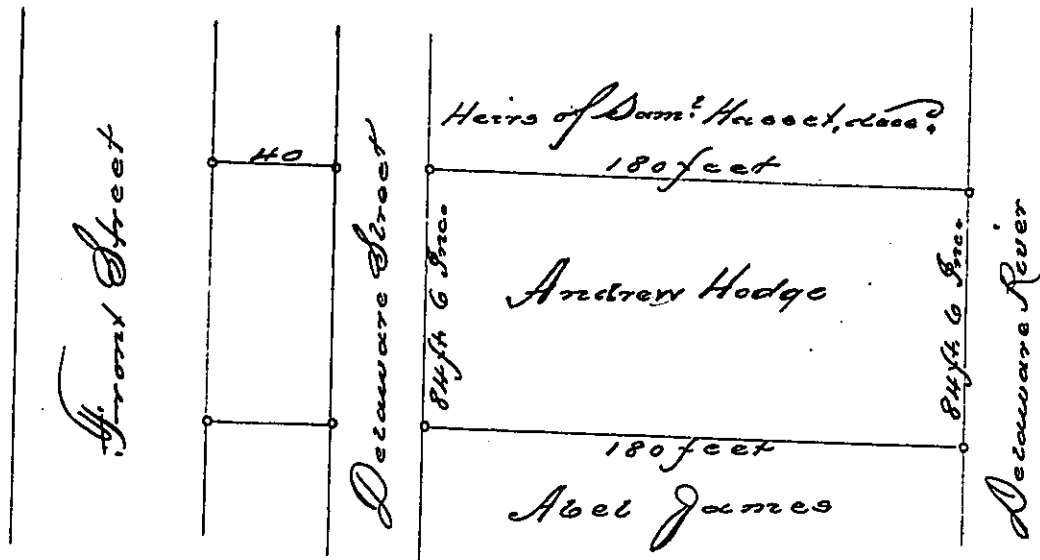 Front Street
40
Delaware Street
Heirs of Sam.l Hasset, dece.d
180 feet
84ft 6 Inc.
Andrew Hodge
84ft 6 Inc.
180 feet
Abel James
Delaware River